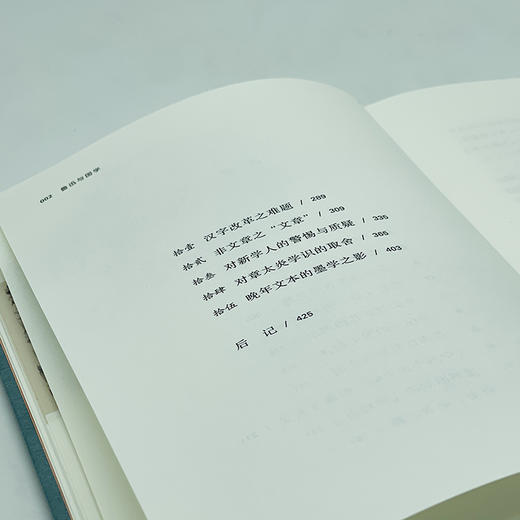 002 鲁迅与国学
拾壹 汉字改革之难题 / 289
拾贰 非文章之“文章” / 309
拾叁 对新学人的警惕与质疑 / 335
拾肆 对章太炎学识的取舍 / 365
拾伍 晚年文本的墨学之影 / 403
后记 / 425